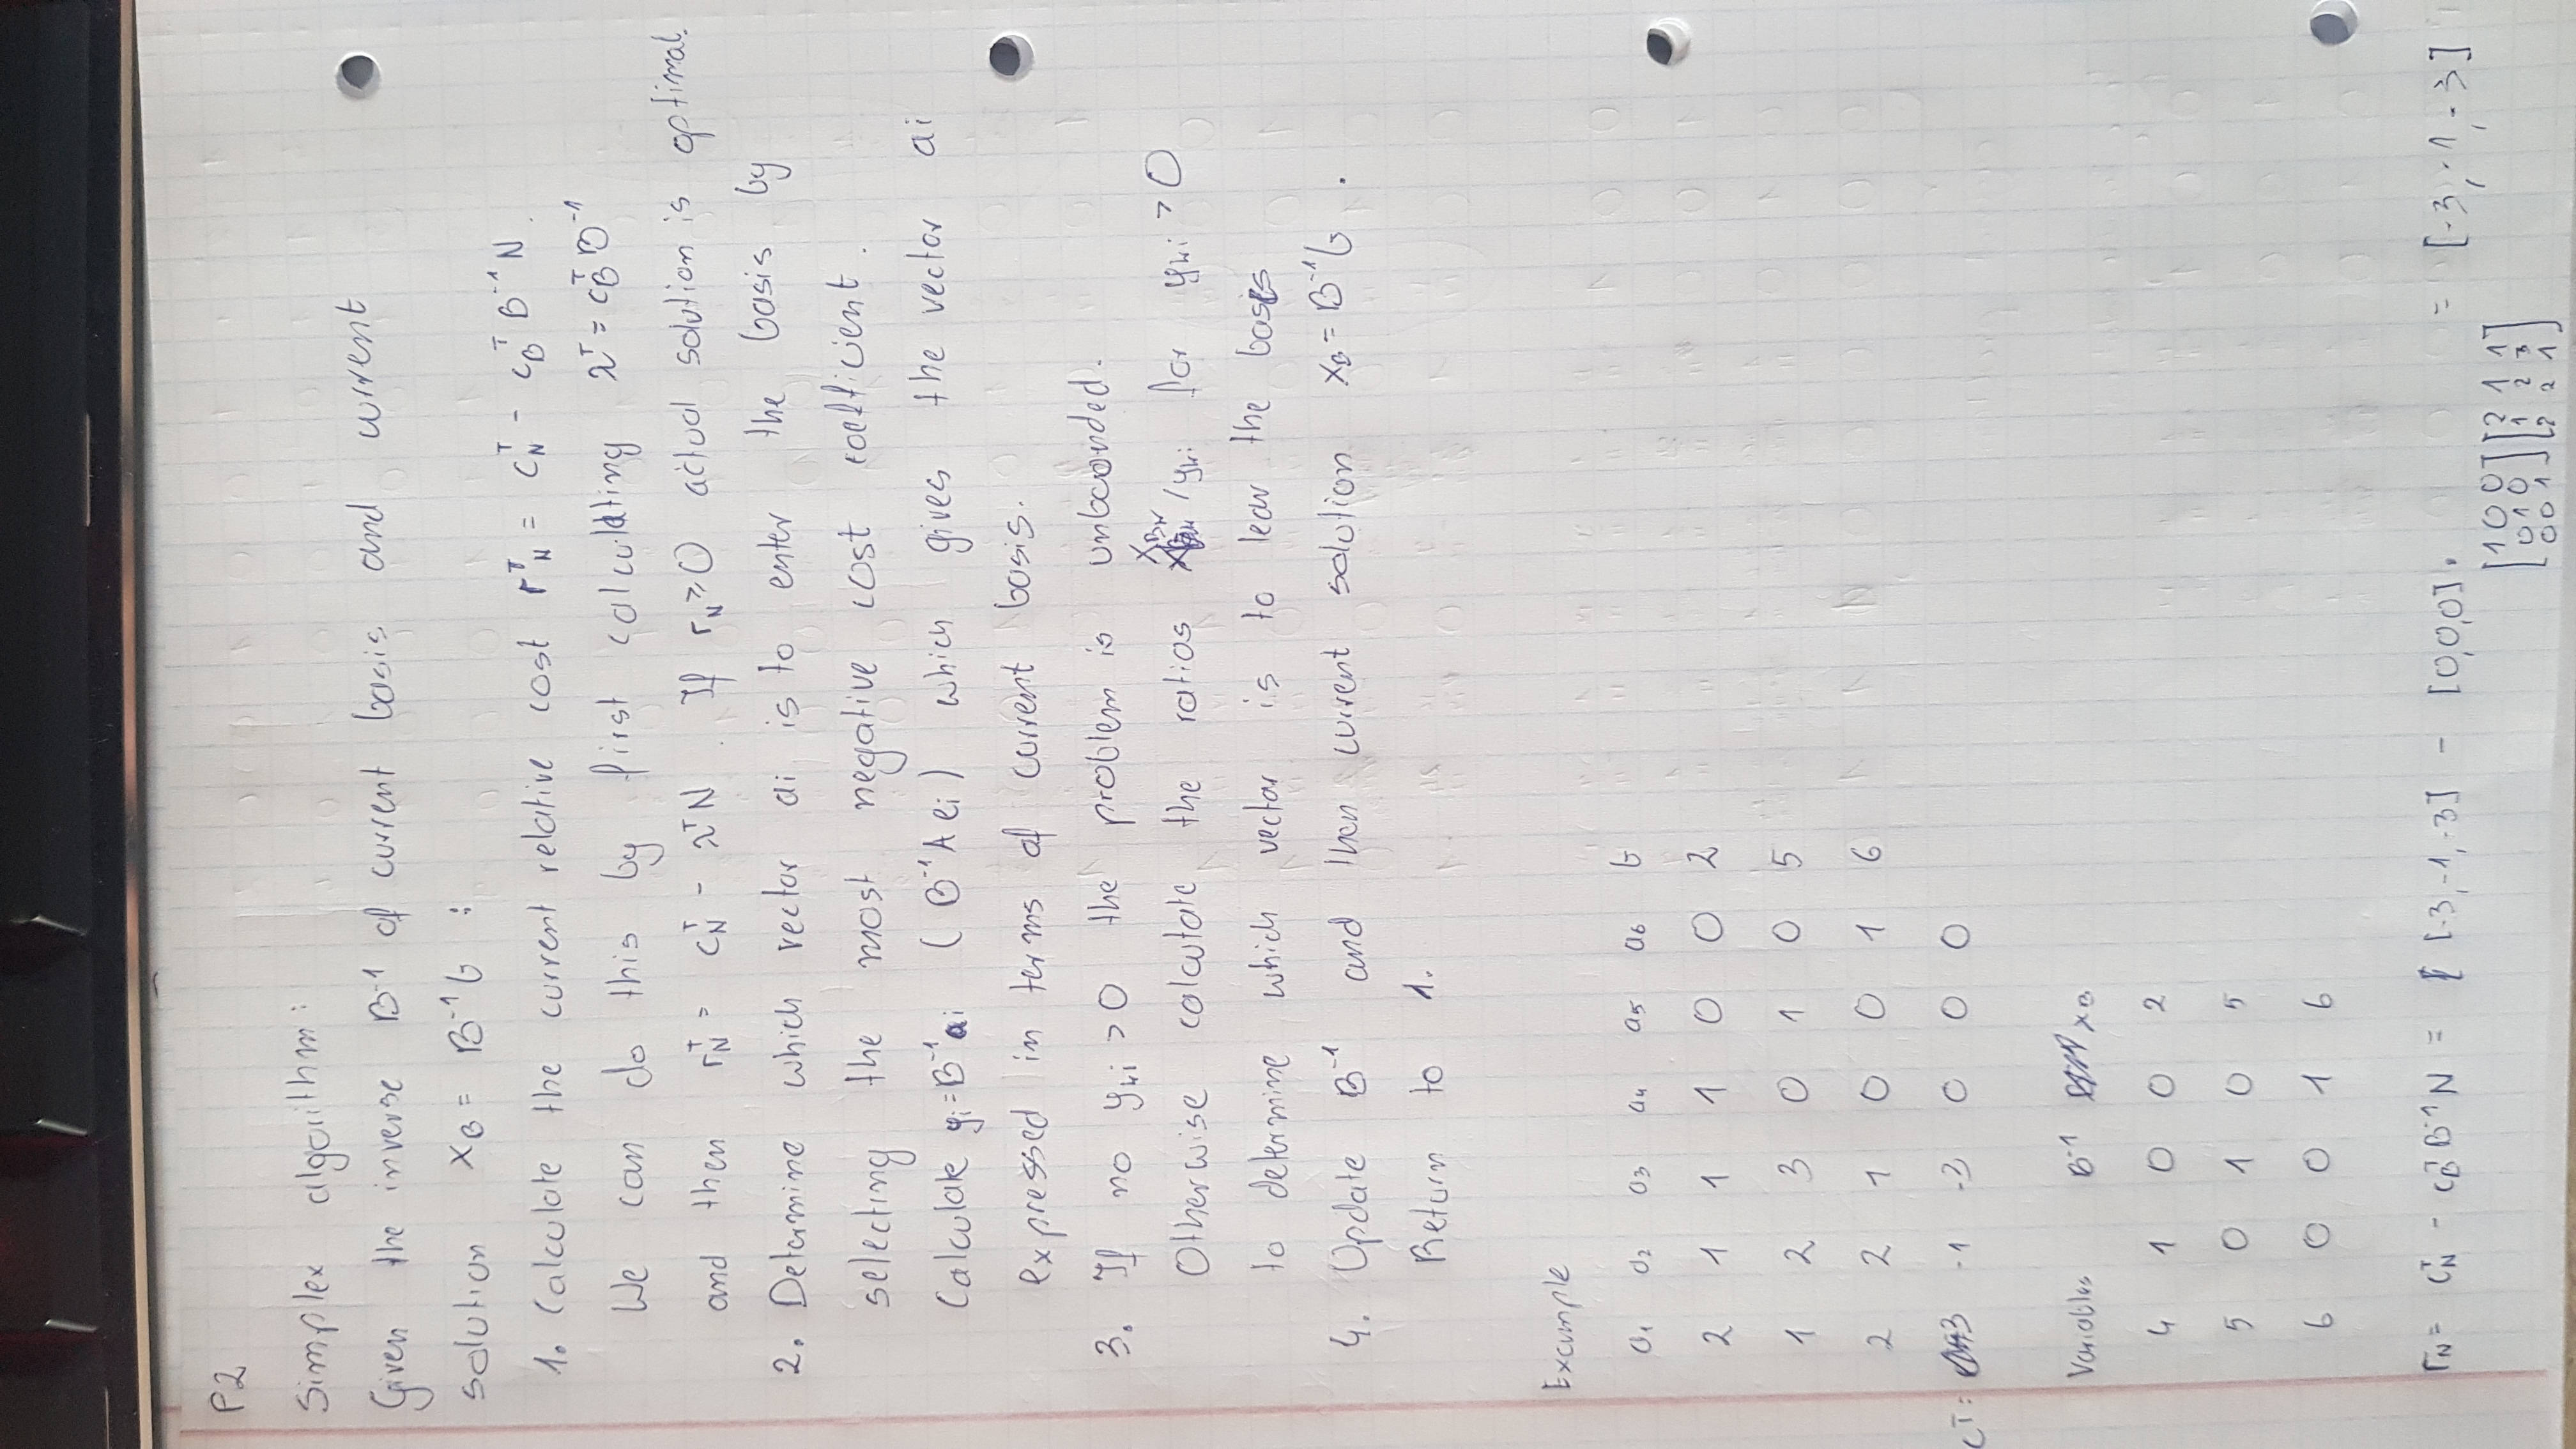 P2
Simplex algorithm:
Given the inverse B⁻¹ of current basis and current
solution x_B = B⁻¹b :
1. Calculate the current relative cost r_N^T = c_N^T - c_B^T B⁻¹N.
We can do this by first calculating λ^T = c_B^T B⁻¹
and then r_N^T = c_N^T - λ^T N. If r_N ≥ 0 actual solution is optimal.
2. Determine which vector ai is to enter the basis by
selecting the most negative cost coefficient.
Calculate y_i = B⁻¹a_i (B⁻¹A e_i) which gives the vector ai
expressed in terms of current basis.
3. If no y_ki > 0 the problem is unbounded.
Otherwise calculate the ratios x_Bk / y_ki for y_ki > 0
to determine which vector is to leav the basis
4. Update B⁻¹ and then current solution x_B = B⁻¹b.
Return to 1.
Example
a₁ a₂ a₃ a₄ a₅ a₆ b
2 1 1 1 0 0 2
1 2 3 0 1 0 5
2 2 1 0 0 1 6
c^T = -3 -1 -3 0 0 0
Variables B⁻¹ x_B
4 1 0 0 2
5 0 1 0 5
6 0 0 1 6
r_N = c_N^T - c_B^T B⁻¹N = [-3, -1, -3] - [0, 0, 0] · = [-3, -1, -3]
[1 0 0] [2 1 1]
[0 1 0] [1 2 3]
[0 0 1] [2 2 1]